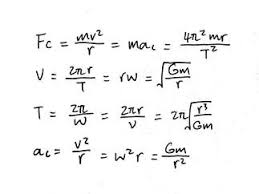 Fc = mv²/r = mac = 4π²mr/T²
V = 2πr/T = rω = √(Gm/r)
T = 2π/ω = 2πr/v = 2π√(r³/Gm)
ac = v²/r = ω²r = Gm/r²